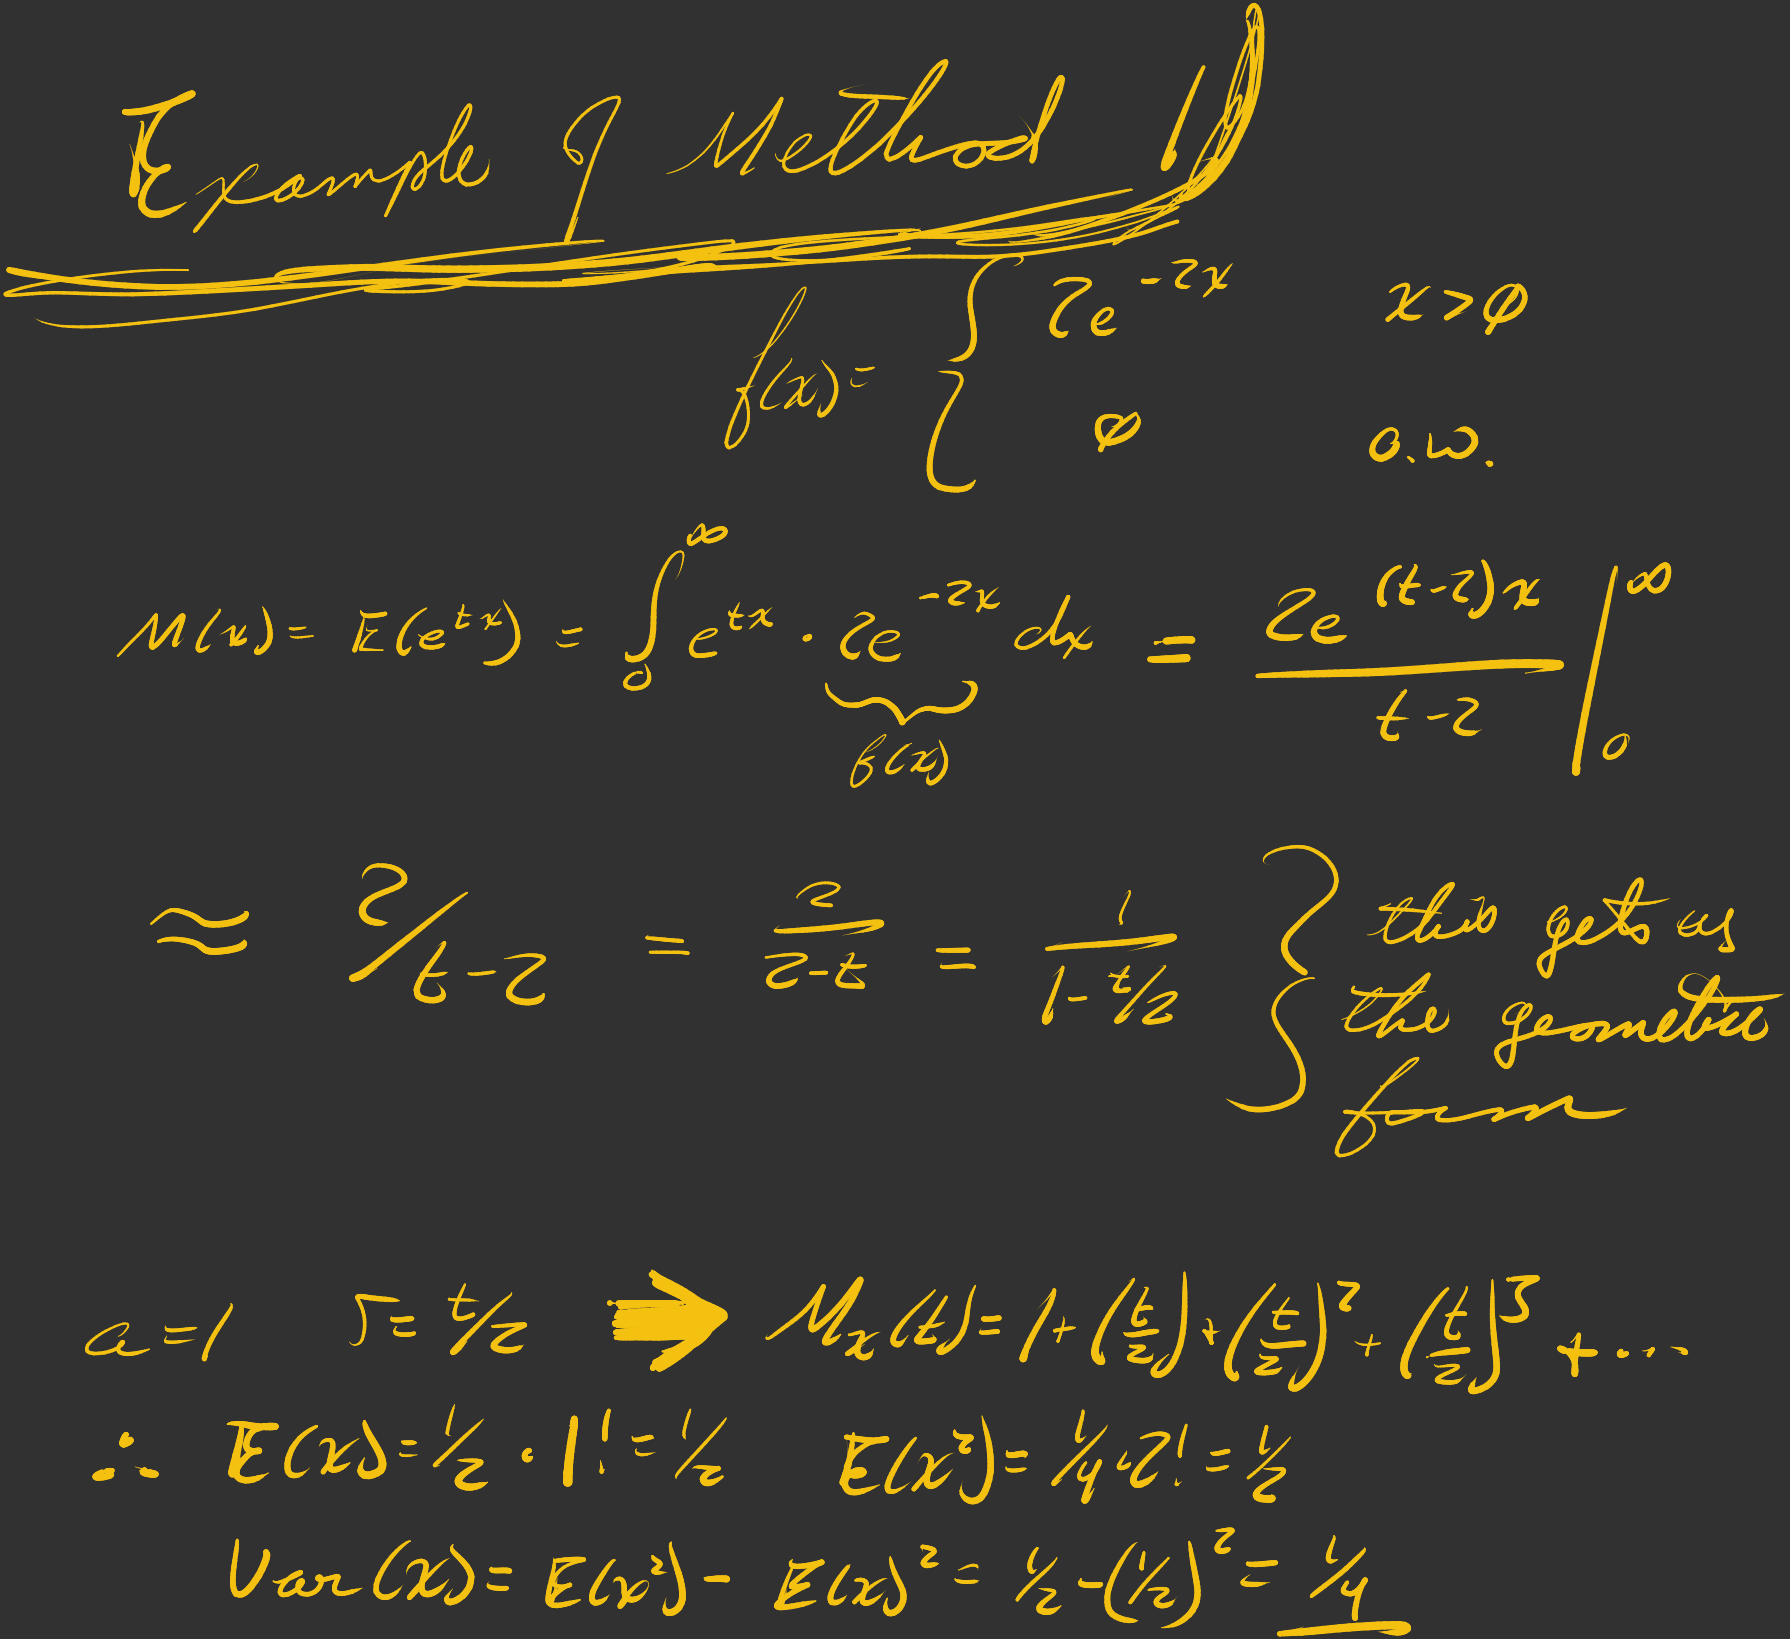 Example of Method 1
f(x) = { 2e^{-2x} x > 0
0 o.w.
M(x) = E(e^{tx}) = ∫_0^∞ e^{tx} · 2e^{-2x} dx = 2e^{(t-2)x} / (t-2) |_0^∞
f(x)
≈ 2/t-2 = 2/(2-t) = 1/(1-t/2) } this gets us
the geometric
form
a=1 r= t/2 ⇒ M_x(t) = 1 + (t/2) + (t/2)^2 + (t/2)^3 + ...
∴ E(x) = 1/2 · 1! = 1/2 E(x^2) = 1/4 · 2! = 1/2
Var(x) = E(x^2) - E(x)^2 = 1/2 - (1/2)^2 = 1/4